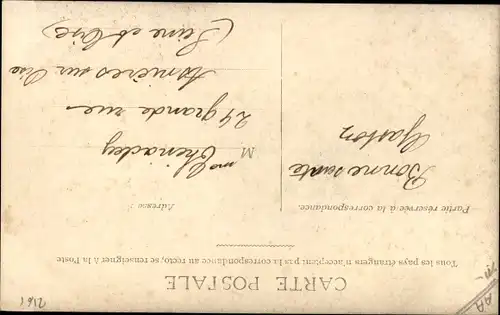 CARTE POSTALE
Tous les pays étrangers n'acceptent pas la correspondance au recto, se renseigner à la Poste
Partie réservée à la correspondance.
Bonne santé
Gaston
Adresse :
M me
24 grande rue
Asnières sur Oise
(Seine et Oise)